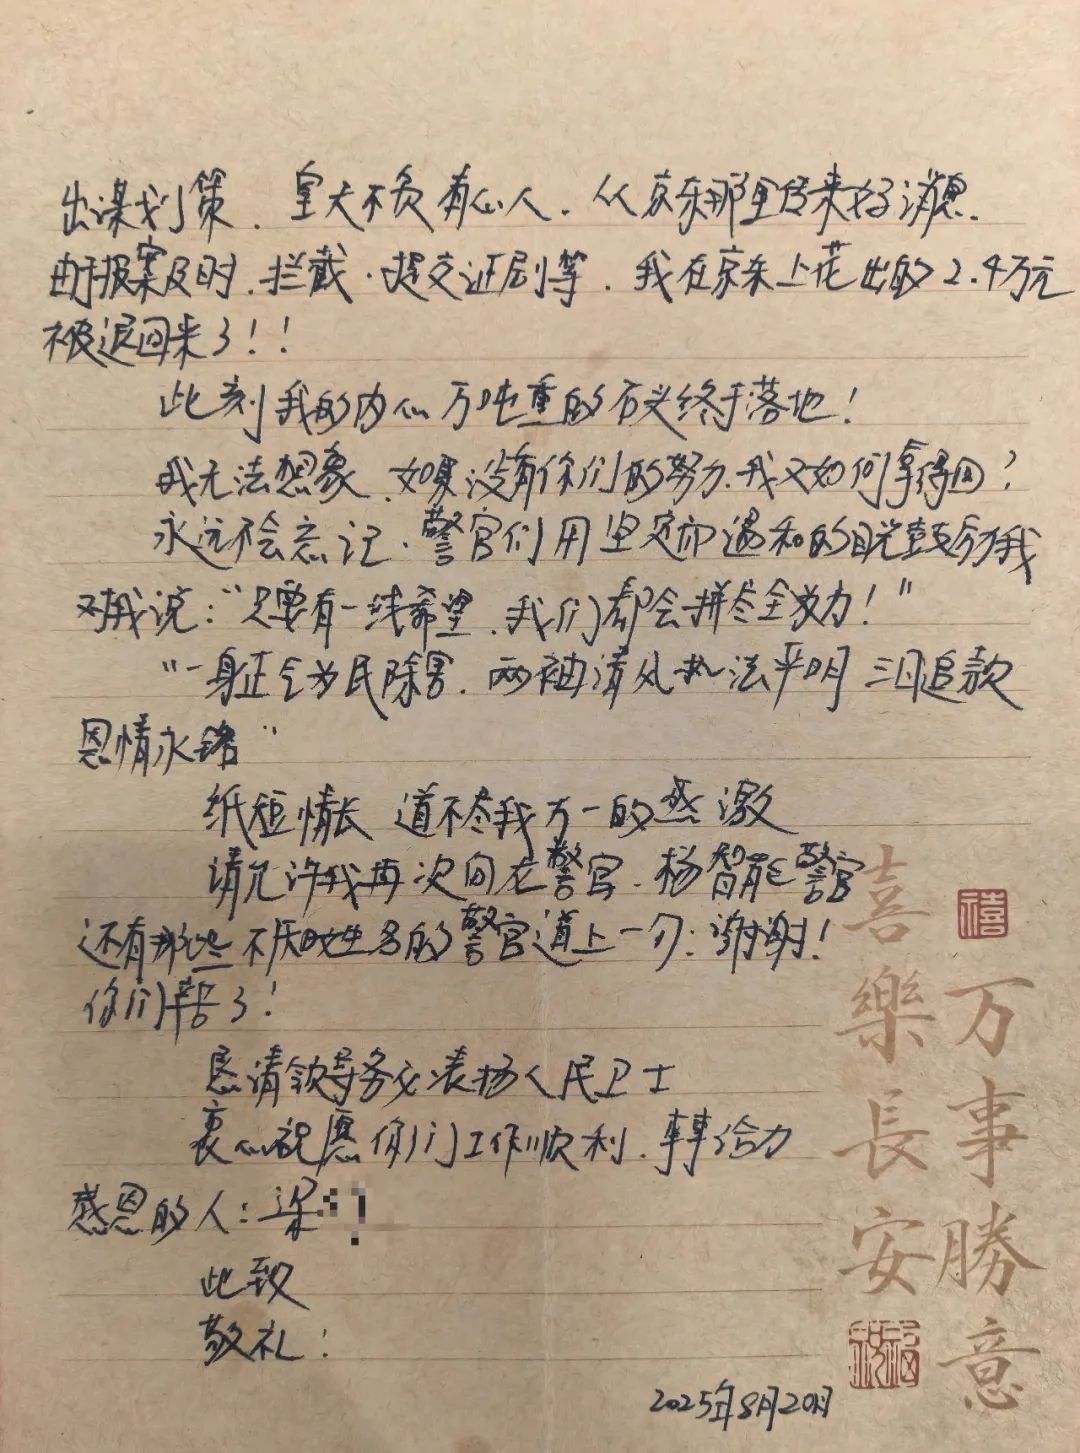 出谋划策、皇天不负有心人、从京东那里传来好消息、
由于报案及时、拦截、提交证剧等、我在京东上花出的2.4万元
被退回来了!!
此刻我的内心万吨重的石头终于落地!
我无法想象、如果没有你们的努力、我又如何拿得回?
永远不会忘记、警官们用坚定而温和的目光鼓励我
对我说:“只要有一线希望、我们都会拼尽全力!”
“一身正气为民除害、两袖清风执法严明 三日追款
恩情永铭”
纸短情长 道不尽我万一的感激
请允许我再次向左警官、杨智能警官
还有那些不知姓名的警官道上一句:谢谢!
你们辛苦了!
恳请领导务必表扬人民卫士
衷心祝愿你们工作顺利、事事给力
感恩的人:梁
此致
敬礼!
2025年8月20日
万事勝意
喜樂長安
禧